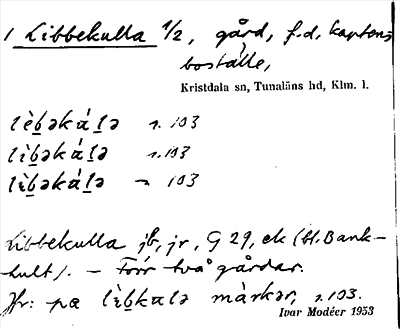 1 Libbekulla 1/2, gård, f.d. kaptens
boställe,
Kristdala sn, Tunaläns hd, Klm. l.
lèb̲əkál̲ə s. 103
lìb̲əkál̲ə s. 103
lìb̲əkál̲ə 103
Libbekulla jb, jr, G 29, ek (bl. Bank-
hult). – Förr två gårdar.
Jfr: pa lìb̲kalə màrkər, s. 103.
Ivar Modéer 1953